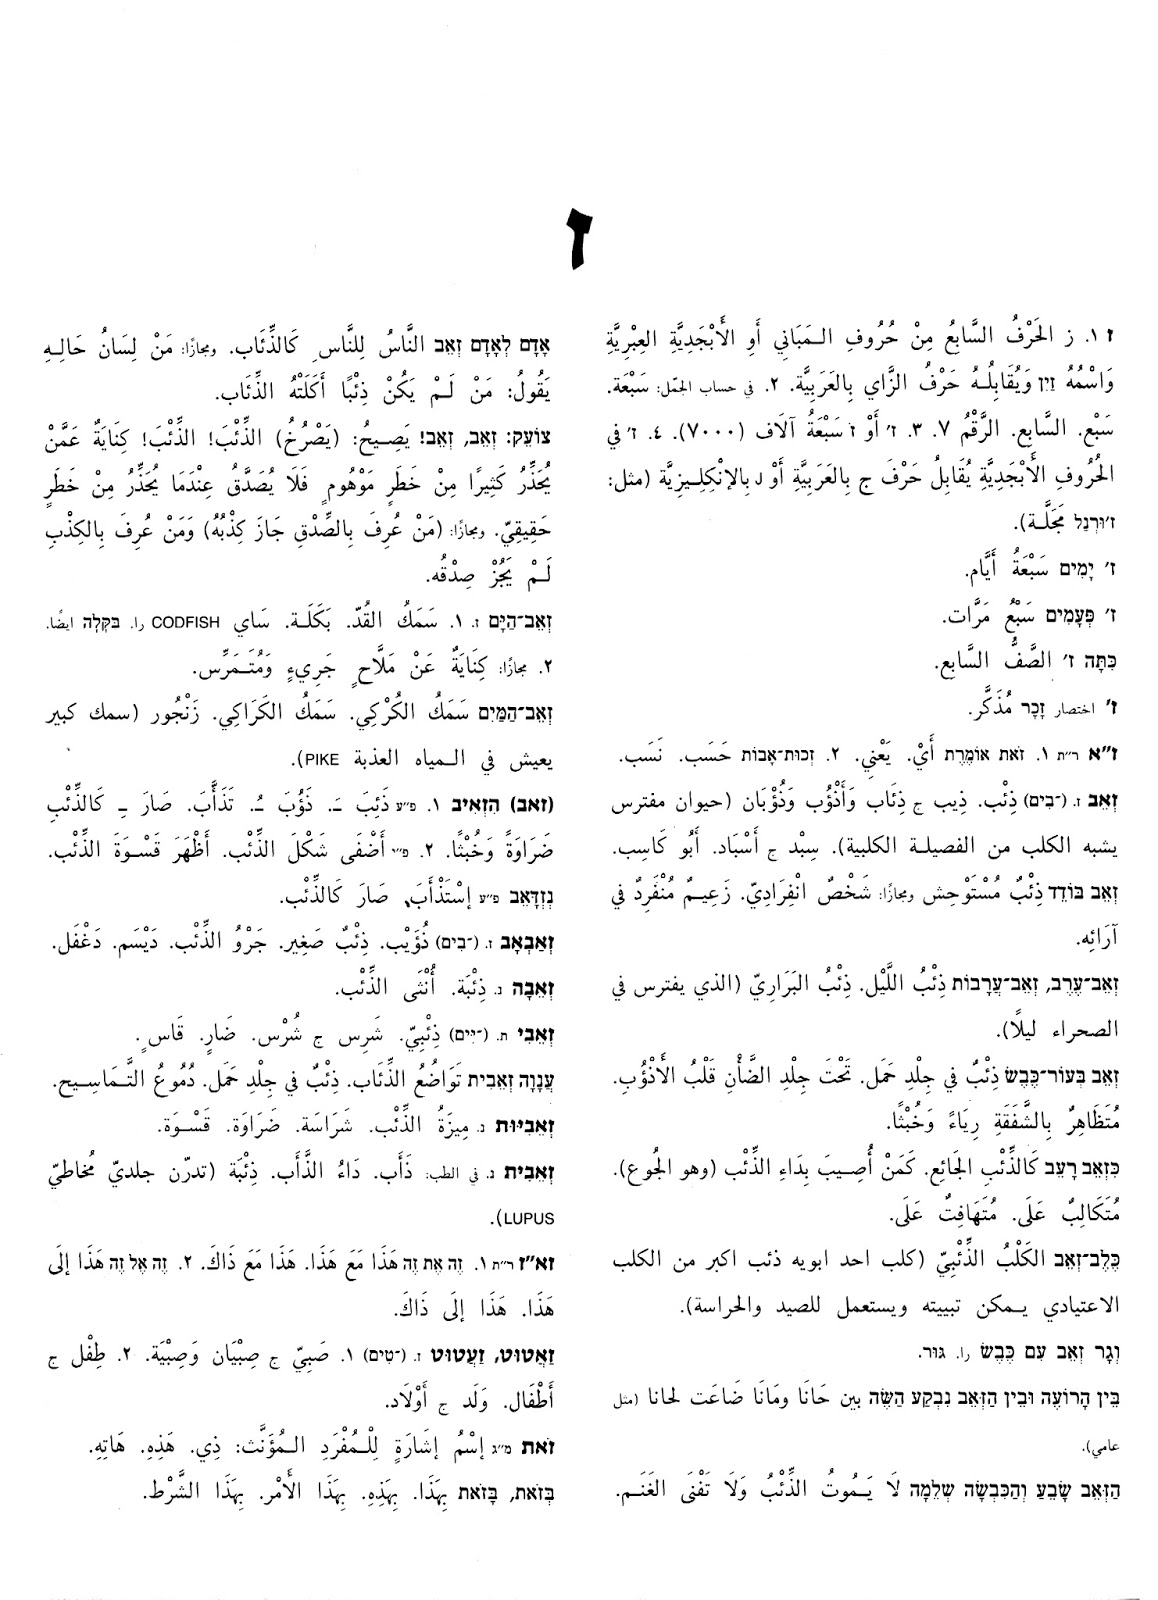 ז
ז ١. ز الحَرْفُ السَّابِعُ مِنْ حُرُوفِ الـمَبَانِي أَوِ الأَبْجَدِيَّةِ العِبْرِيَّةِ
وَاسْمُهُ זַיִן وَيُقَابِلُـهُ حَرْفُ الزَّاي بِالعَرَبِيَّة. ٢. في حساب الجمّل: سَبْعَة.
سَبْع. السَّابِع. الرَّقْمُ ٧. ٣. ז׳ أَوْ ז سَبْعَةُ آلَاف (٧٠٠٠). ٤. ז׳ في
الحُرُوفِ الأَبْجَدِيَّةِ يُقَابِلُ حَرْفَ ج بِالعَرَبِيَّة أَوْ J بِالإنْكِلِـيزِيَّة (مثل:
ז׳וּרְנַל مَجَلَّـة).
ז׳ יָמִים سَبْعَةُ أَيَّام.
ז׳ פְּעָמִים سَبْعُ مَرَّات.
כִּתָּה ז׳ الصَّفُّ السَّابِع.
ז׳ اختصار זָכָר مُذَكَّر.
ז״א ר״ת ١. זֹאת אוֹמֶרֶת أَيْ. يَعْنِي. ٢. זְכוּת־אָבוֹת حَسَب. نَسَب.
זְאֵב ז. (־בִים) ذِئْب. ذِيب ج ذِئَاب وَأَذْؤُب وَذُؤْبَان (حيوان مفترس
يشبه الكلب من الفصيلـة الكلبية). سِبْد ج أَسْبَاد. أَبُو كَاسِب.
זְאֵב בּוֹדֵד ذِئْبٌ مُسْتَوْحِش ومجازًا: شَخْصٌ انْفِرَادِيّ. زَعِيـمٌ مُنْفَرِدٌ في
آرَائِه.
זְאֵב־עֶרֶב, זְאֵב־עֲרָבוֹת ذِئْبُ اللَّيْل. ذِئْبُ البَرَارِيّ (الذي يفترس في
الصحراء ليلًا).
זְאֵב בְּעוֹר־כֶּבֶשׂ ذِئْبٌ في جِلْدِ حَمَل. تَحْتَ جِلْدِ الضَّأْنِ قَلْبُ الأَذْؤُبِ.
مُتَظَاهِرٌ بِالشَّفَقَةِ رِيَاءً وَخُبْثًا.
כִּזְאֵב רָעֵב كَالذِّئْبِ الجَائِع. كَمَنْ أُصِـيبَ بِدَاءِ الذِّئْب (وهو الجُوع).
مُتَكَالِبٌ عَلَى. مُتَهَافِتٌ عَلَى.
כֶּלֶב־זְאֵב الكَلْبُ الذِّئْبِيّ (كلب احد ابويه ذئب اكبر من الكلب
الاعتيادي يـمكن تبييته ويستعمل للصيد والحراسة).
וְגָר זְאֵב עִם כֶּבֶשׂ را. גור.
בֵּין הָרוֹעֶה וּבֵין הַזְּאֵב נִבְקַע הַשֶּׂה بين حَانَا ومَانَا ضَاعَت لحانا (مثل
عامي).
הַזְּאֵב שָׂבֵעַ וְהַכִּבְשָׂה שְׁלֵמָה لَا يَـمُوتُ الذِّئْبُ وَلَا تَفْنَى الغَنَـم.
אָדָם לְאָדָם זְאֵב النَّاسُ لِلنَّاسِ كَالذِّئَاب. ومجازًا: مَنْ لِسَانُ حَالِـهِ
يَقُولُ: مَنْ لَـمْ يَكُنْ ذِئْبًا أَكَلَتْهُ الذِّئَاب.
צוֹעֵק: זְאֵב, זְאֵב! يَصِـيحُ: (يَصْرُخُ) الذِّئْبَ! الذِّئْبَ! كِنَايَةٌ عَمَّنْ
يُحَذِّرُ كَثِيرًا مِنْ خَطَرٍ مَوْهُومٍ فَلَا يُصَدَّقُ عِنْدَمَا يُحَذِّرُ مِنْ خَطَرٍ
حَقِيقِيّ. ومجازًا: (مَنْ عُرِفَ بِالصِّدْقِ جَازَ كِذْبُهُ) وَمَنْ عُرِفَ بِالكِذْبِ
لَـمْ يَجُزْ صِدْقُه.
זְאֵב־הַיָּם ז. ١. سَمَكُ القُدّ. بَكَلَـة. سَاي CODFISH را. בַּקָלָה ايضًا.
٢. مجازًا: كِنَايَةٌ عَنْ مَلَّاحٍ جَرِيءٍ وَمُتَـمَرِّس.
זְאֵב־הַמַּיִם سَمَكُ الكُرْكِي. سَمَكُ الكَرَاكِي. زَنْجُور (سمك كبير
يعيش في الـمياه العذبة PIKE).
(זאב) הִזְאִיב ١. פ״ע ذَئِبَ ـَ. ذَؤُبَ ـُ. تَذَأَّبَ. صَارَ ـِ كَالذِّئْبِ
ضَرَاوَةً وَخُبْثًا. ٢. פ״י أَضْفَى شَكْلَ الذِّئْب. أَظْهَرَ قَسْـوَةَ الذِّئْب.
נִזְדָּאֵב פ״ע إسْتَذْأَبَ. صَارَ كَالذِّئْب.
זְאַבְאָב ז. (־בִים) ذُؤَيْب. ذِئْبٌ صَغِير. جَرْوُ الذِّئْب. دَيْسَم. دَغْفَل.
זְאֵבָה נ. ذِئْبَة. أُنْثَى الذِّئْب.
זְאֵבִי ת. (־יִים) ذِئْبِيّ. شَرِس ج شُرْس. ضَارٍ. قَاسٍ.
עֲנָוָה זְאֵבִית تَوَاضُعُ الذِّئَاب. ذِئْبٌ في جِلْدِ حَمَل. دُمُوعُ التَّـمَاسِـيح.
זְאֵבִיּוּת נ. مِيزَةُ الذِّئْب. شَرَاسَة. ضَرَاوَة. قَسْـوَة.
זְאֵבִית נ. في الطب: ذَأَب. دَاءُ الذَّأَب. ذِئْبَة (تدرّن جلديّ مُخاطيّ
LUPUS).
זא״ז ר״ת ١. זֶה אֶת זֶה هَذَا مَعَ هَذَا. هَذَا مَعَ ذَاكَ. ٢. זֶה אֶל זֶה هَذَا إلَى
هَذَا. هَذَا إلَى ذَاكَ.
זַאֲטוּט, זַעֲטוּט ז. (־טִים) ١. صَبِيّ ج صِبْيَان وَصِبْيَة. ٢. طِفْل ج
أَطْفَال. وَلَد ج أَوْلَاد.
זֹאת מ״ג إسْمُ إشَارَةٍ لِلْـمُفْرَدِ الـمُؤَنَّث: ذِي. هَذِهِ. هَاتِهِ.
בְּזֹאת, בָּזֹאת بِهَذَا. بِهَذِهِ. بِهَذَا الأَمْر. بِهَذَا الشَّرْط.